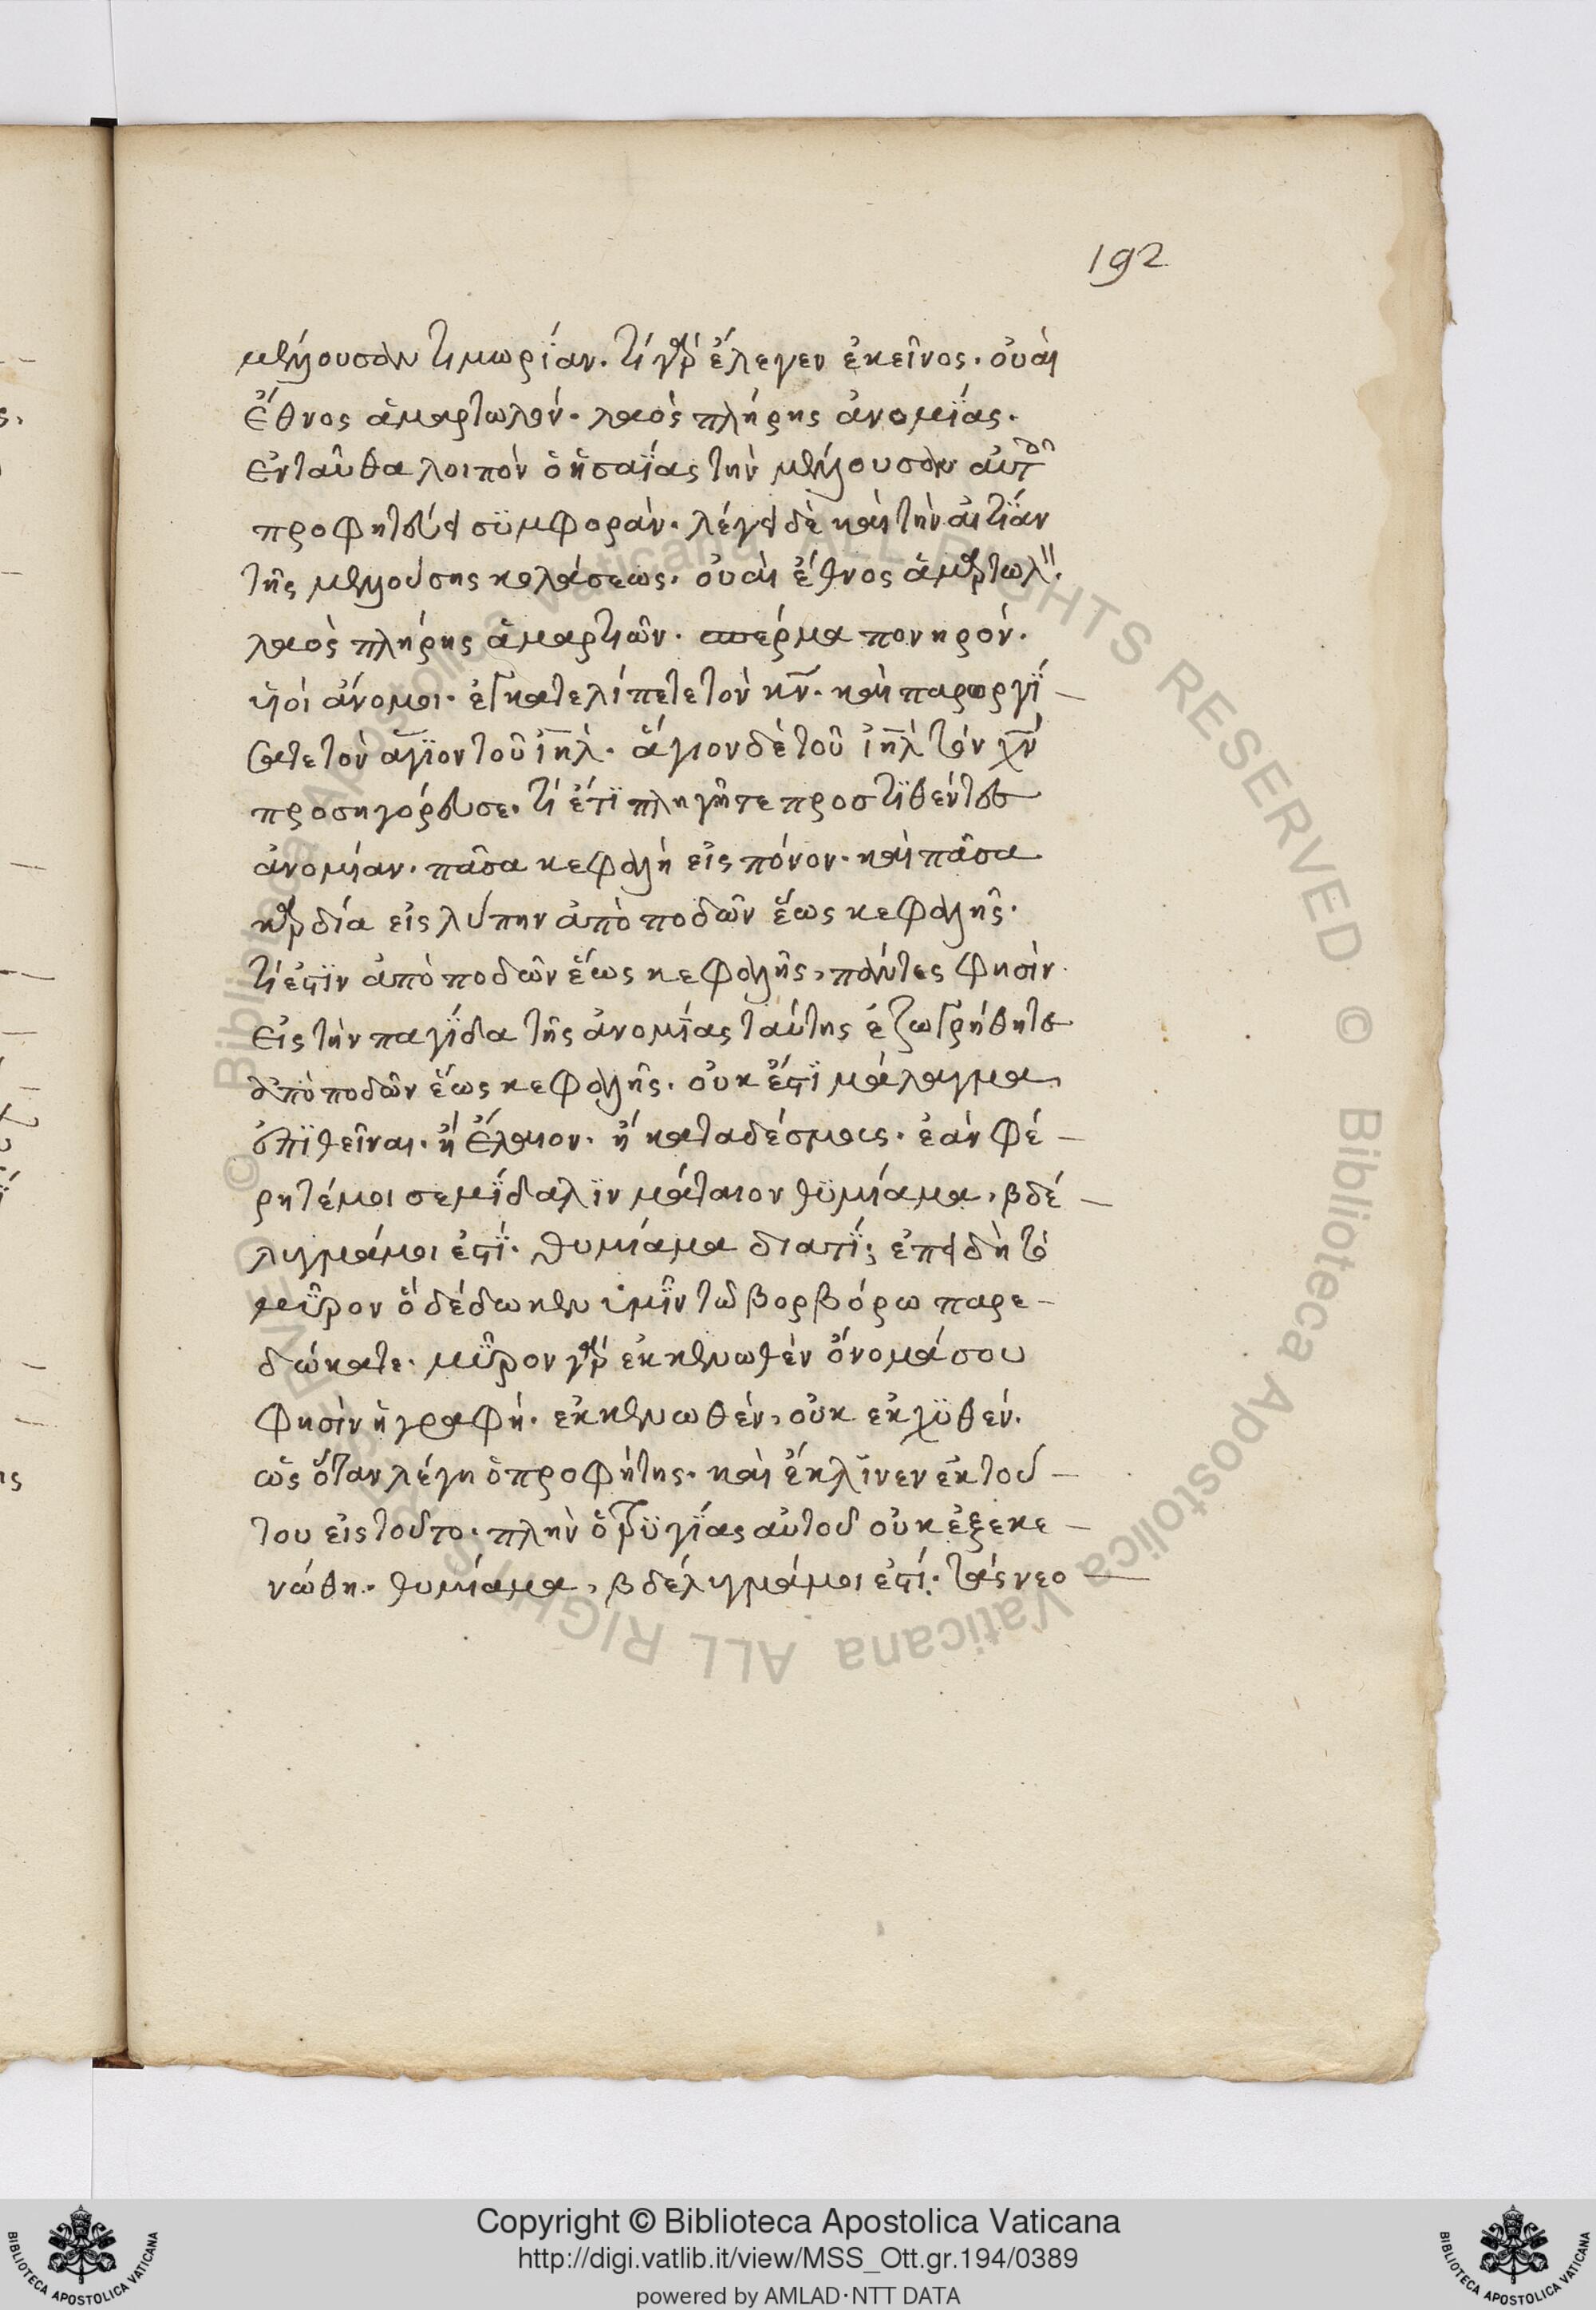 192
μέλλουσαν τιμωρΐαν. τί γὰρ ἔλεγεν ἐκεῖνος. οὐαὶ
ἔθνος ἁμαρτωλόν. λαὸς πλήρης ἀνομΐας.
ἐνταῦθα λοιπὸν ὁ ἠσαΐας τὴν μέλλουσαν αὐτοῖς
προφητεύει σϋμφοράν. λέγει δὲ καὶ τὴν αἰτΐαν
τῆς μελλούσης κολάσεως. οὐαὶ ἔθνος ἁμαρτωλὸν.
λαὸς πλήρης ἁμαρτιῶν. σπέρμα πονηρόν.
ὑιοὶ ἄνομοι. ἐγκατελίπετε τὸν κν̅. καὶ παρωργΐ
σατε τὸν ἅγϊον τοῦ ἰη̅λ. ἅγιον δὲ τοῦ ἰη̅λ τὸν χν̅
προσηγόρευσε. τί ἔτϊ πληγῆτε προστϊθέντες
ἀνομίαν. πᾶσα κεφαλὴ εἰς πόνον. καὶ πᾶσα
καρδία εἰς λύπην ἀπὸ ποδῶν ἕως κεφαλῆς.
τί ἐστϊν ἀπὸ ποδῶν ἕως κεφαλῆς, πάντες φησὶν
εἰς τὴν παγΐδα τῆς ἀνομΐας ταύτης ἐζωγρήθητε
ἀπὸ ποδῶν ἕως κεφαλῆς. οὐκ ἔστϊ μάλαγμα,
ἐπϊθεῖναι. ἢ ἔλαιον. ἢ καταδέσμους. ἐὰν φέ
ρητέ μοι σεμΐδαλϊν μάταιον θϋμίαμα, βδέ
λυγμά μοι ἐστΐ. θυμίαμα διατΐ; ἐπειδὴ τὸ
μῦρον ὃ δέδωκεν ὑμῖν τῶ βορβόρω παρε
δώκατε. μῦρον γὰρ ἐκκενωθὲν ὄνομά σου
φησὶν ἡ γραφή. ἐκκενωθέν, οὐκ ἐκχϋθέν.
ὡς ὅταν λέγη ὁ προφήτης. καὶ ἔκλϊνεν ἐκ τού
του εἰς τοῦτο. πλὴν ὁ τρϋγΐας αὐτοῦ οὐκ ἐξεκε
νώθη. θυμίαμα, βδέλυγμά μοι ἐστί. τὰς νεο
Copyright © Biblioteca Apostolica Vaticana
http://digi.vatlib.it/view/MSS_Ott.gr.194/0389
powered by AMLAD·NTT DATA